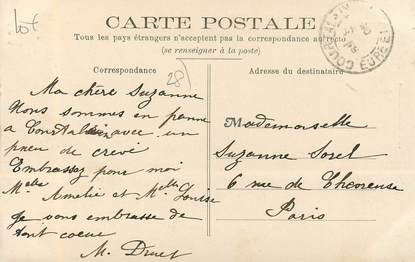 lot
CARTE POSTALE
Tous les pays étrangers n'acceptent pas la correspondance au recto
(se renseigner à la poste)
Correspondance
Adresse du destinataire
28
Ma chère Suzanne
Nous sommes en panne
a avec un
pneu de crevé
Embrassez pour moi
Melle Amelie et Melle Louise
Je vous embrasse de
tout coeur
M. Druet
Mademoiselle
Suzanne Sorel
6 rue de Chevreuse
Paris
EURE